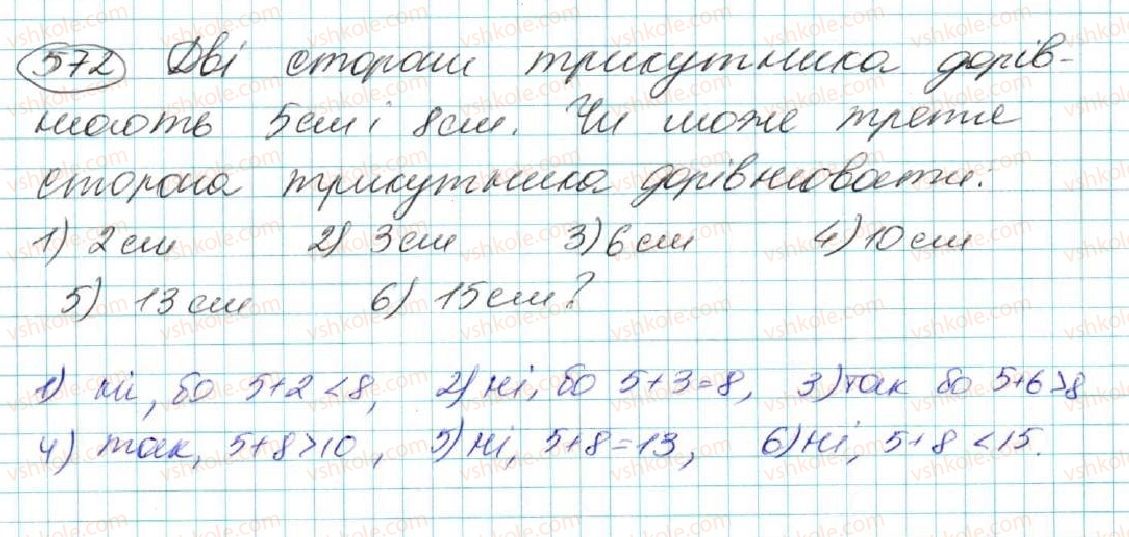 572 Дві сторони трикутника дорів-
нюють 5см і 8см. Чи може третя
сторона трикутника дорівнювати:
1) 2см 2) 3см 3) 6см 4) 10см
5) 13см 6) 15см?
1) ні, бо 5+2<8, 2) ні, бо 5+3=8, 3) так бо 5+6>8
4) так, 5+8>10, 5) ні, 5+8=13, 6) ні, 5+8<15.